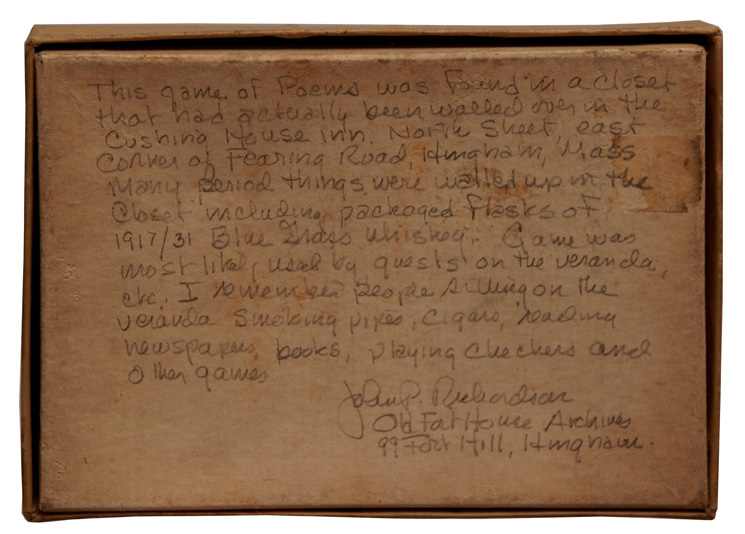 This game of Poems was found in a closet
that had actually been walled over in the
Cushing House Inn. North Street, east
Corner of Fearing Road, Hingham, Mass
Many period things were walled up in the
Closet including packaged flasks of
1917/31 Blue Grass Whiskey. Game was
most likely used by guests on the veranda,
etc. I remember people sitting on the
veranda smoking pipes, cigars, reading
newspapers, books, playing checkers and
other games
John P. Richardson
Old Fort House Archives
99 Fort Hill, Hingham.